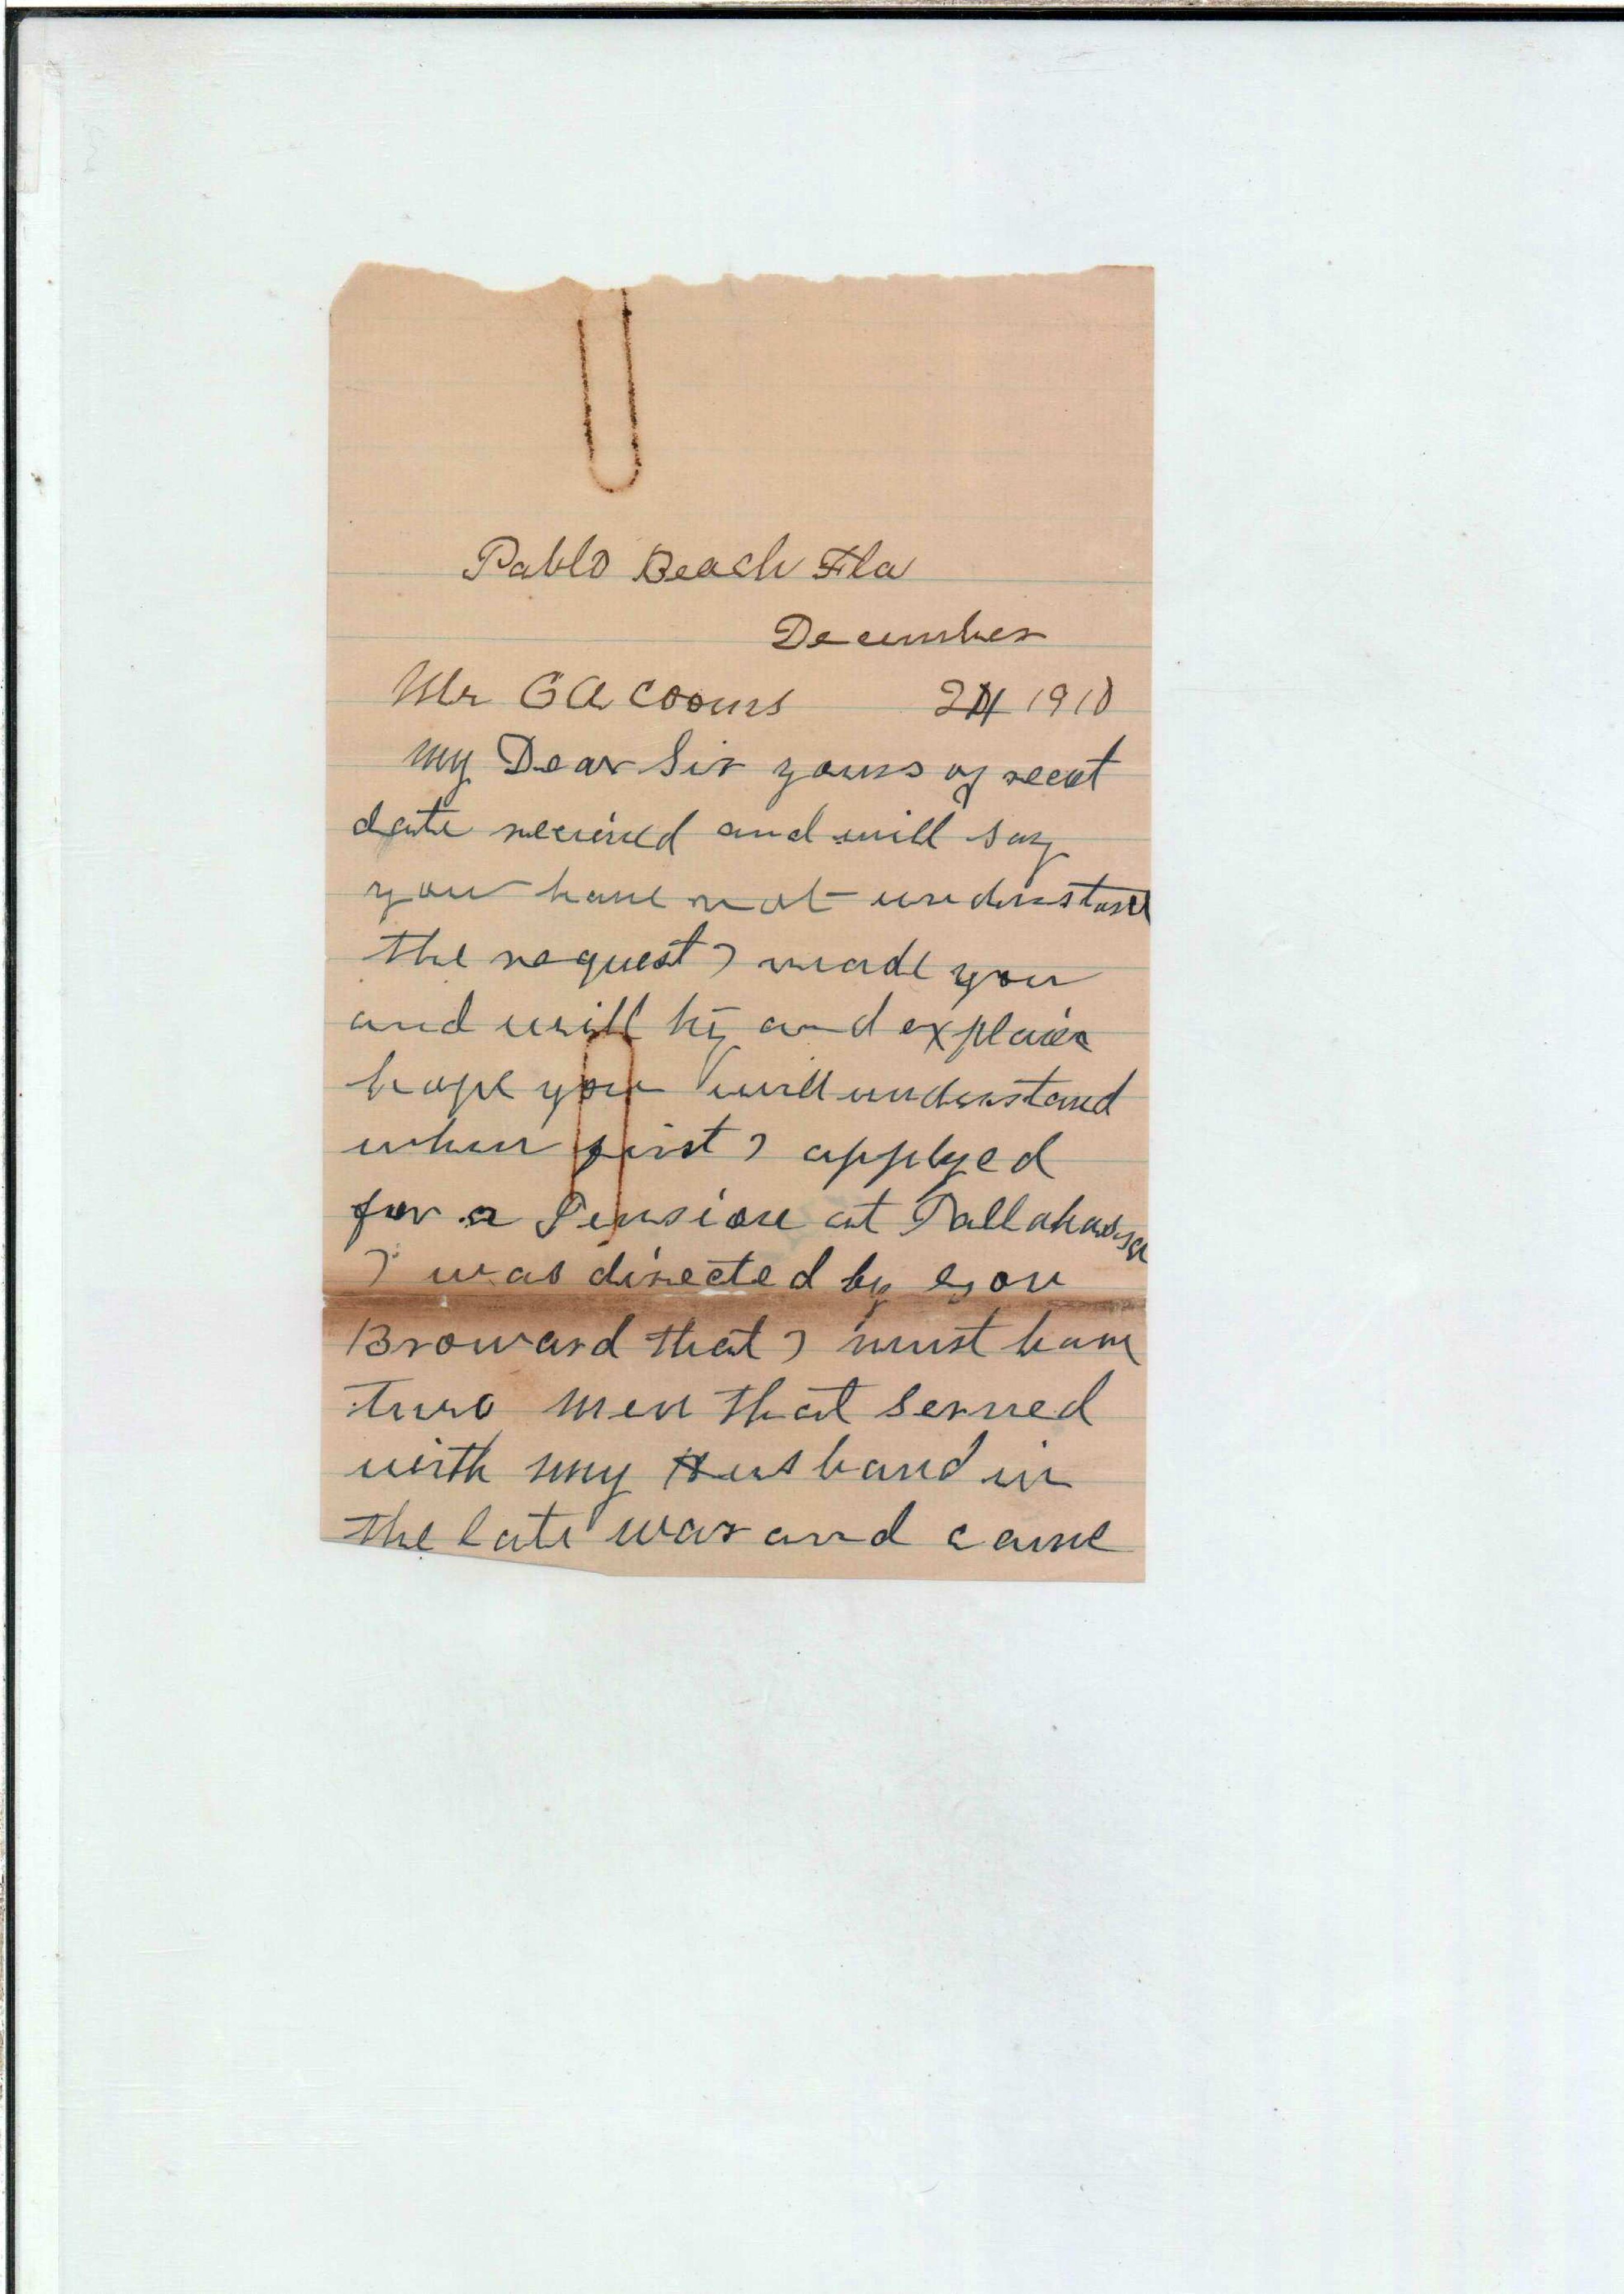 Pablo Beach Fla
December
Mr G A Cooms 1910
My Dear Sir yours of recent
date received and will say
you have not understand
the request I made you
and will try and explain
hope you will understand
when first I applyed
for a Pension at Tallahassa
I was directed by Gov
Broward that I must have
two men that served
with my Husband in
the late war and came